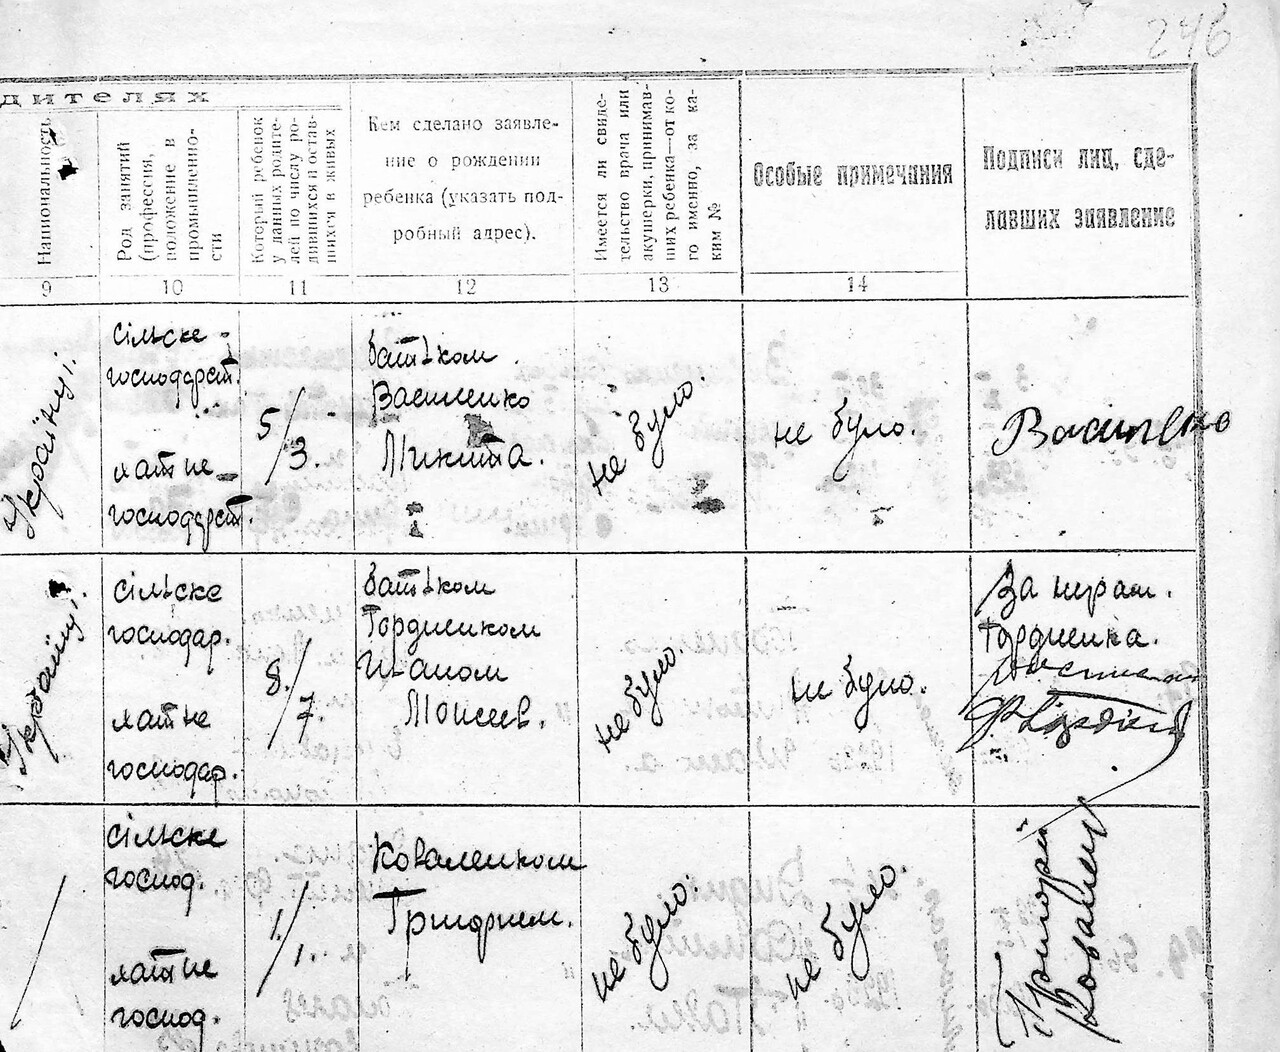 246
дителях
Национальность
Род занятий
(профессия,
положение в
промышленно-
сти
Который ребенок
у данных родите-
лей по числу ро-
дившихся и остав-
шихся в живых
Кем сделано заявле-
ние о рождении
ребенка (указать под-
робный адрес).
Имеется ли свиде-
тельство врача или
акушерки, принимав-
ших ребенка—от ко-
го именно, за ка-
ким №
Особые примечания
Подписи лиц, сде-
лавших заявление
9
10
11
12
13
14
Українці.
сільске
господарст.
хатнє
господарст.
5/3.
батьком
Василенко
Микита.
не було.
не було.
Василенко
Українці.
сільске
господар.
хатнє
господар.
8/7.
батьком
Гордиенком
Иваном
Моисеев.
не було.
не було.
За неграм.
Гордиенка.
сільске
господ.
хатнє
господ.
1/1.
Коваленком
Григорием.
не було.
не було.
Григорій